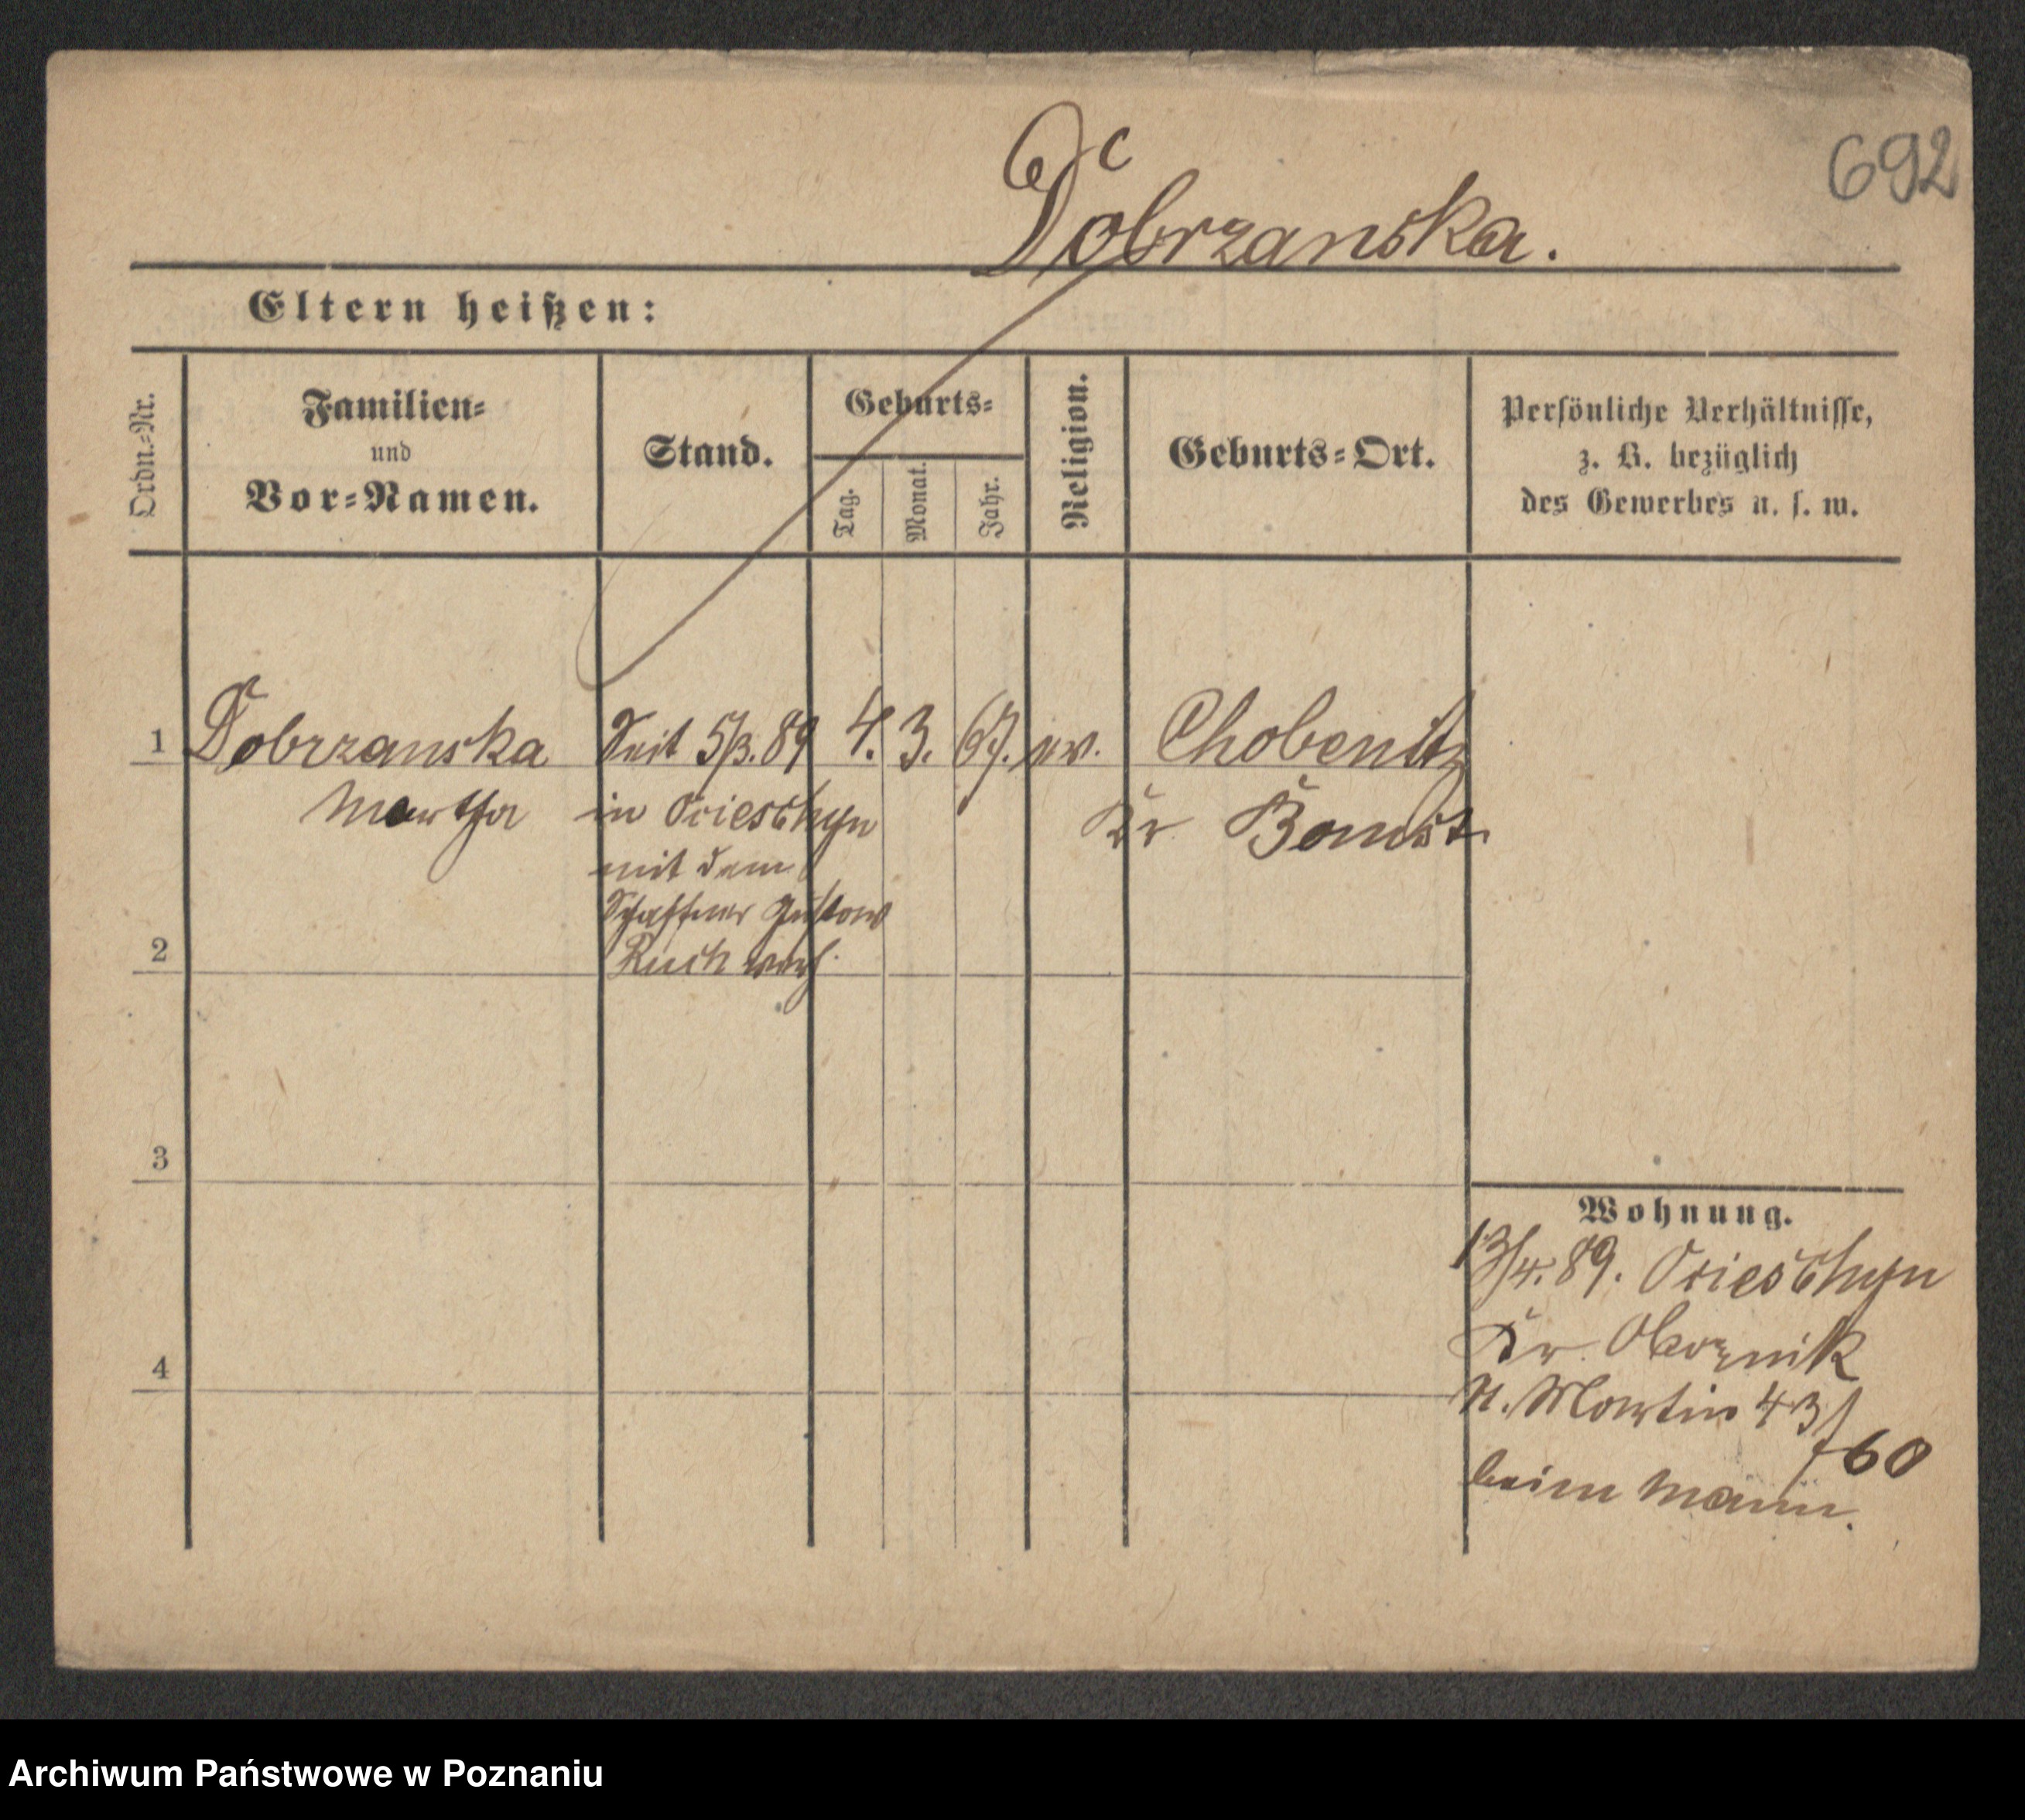 692
Dobrzanska.
Eltern heißen:
Ordn.-Nr.
Familien-
und
Vor-Namen.
Stand.
Geburts-
Tag.
Monat.
Jahr.
Religion.
Geburts-Ort.
Persönliche Verhältnisse,
z. B. bezüglich
des Gewerbes u. s. w.
1 Dobrzanska Seit 5/3. 89 4. 3. 67. ev. Chobenitz
Martha in Orieschyn Kr Bomst.
mit dem
Schaffner Gustav
2 Ruch verh.
3
Wohnung.
13/4. 89. Orieschyn
4 Kr. Obornik
St. Martin 43/
60
beim Mann.
Archiwum Państwowe w Poznaniu